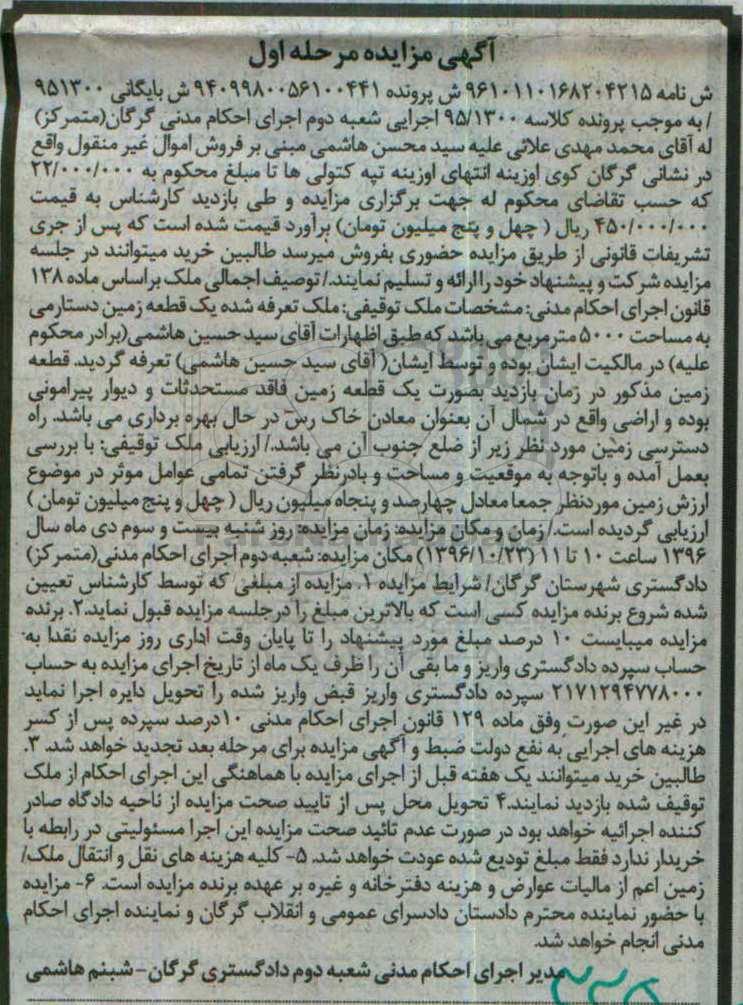 آگهی مزایده مرحله اول
ش نامه ۹۶۱۰۱۱۰۱۶۸۲۰۴۲۱۵ ش پرونده ۹۴۰۹۹۸۰۰۵۶۱۰۰۴۴۱ ش بایگانی ۹۵۱۳۰۰
/ به موجب پرونده کلاسه ۹۵/۱۳۰۰ اجرایی شعبه دوم اجرای احکام مدنی گرگان(متمرکز)
له آقای محمد مهدی علائی علیه سید محسن هاشمی مبنی بر فروش اموال غیر منقول واقع
در نشانی گرگان کوی اوزینه انتهای اوزینه تپه کتولی ها تا مبلغ محکوم به ۲۲/۰۰۰/۰۰۰
که حسب تقاضای محکوم له جهت برگزاری مزایده و طی بازدید کارشناس به قیمت
۴۵۰/۰۰۰/۰۰۰ ریال ( چهل و پنج میلیون تومان) برآورد قیمت شده است که پس از جری
تشریفات قانونی از طریق مزایده حضوری بفروش میرسد طالبین خرید میتوانند در جلسه
مزایده شرکت و پیشنهاد خود را ارائه و تسلیم نمایند./ توصیف اجمالی ملک براساس ماده ۱۳۸
قانون اجرای احکام مدنی: مشخصات ملک توقیفی: ملک تعرفه شده یک قطعه زمین دستارمی
به مساحت ۵۰۰۰ متر مربع می باشد که طبق اظهارات آقای سید حسین هاشمی(برادر محکوم
علیه) در مالکیت ایشان بوده و توسط ایشان( آقای سید حسین هاشمی) تعرفه گردید. قطعه
زمین مذکور در زمان بازدید بصورت یک قطعه زمین فاقد مستحدثات و دیوار پیرامونی
بوده و اراضی واقع در شمال آن بعنوان معادن خاک رس در حال بهره برداری می باشد. راه
دسترسی زمین مورد نظر زیر از ضلع جنوب آن می باشد./ ارزیابی ملک توقیفی: با بررسی
بعمل آمده و باتوجه به موقعیت و مساحت و بادرنظر گرفتن تمامی عوامل موثر در موضوع
ارزش زمین موردنظر جمعا معادل چهارصد و پنجاه میلیون ریال ( چهل و پنج میلیون تومان )
ارزیابی گردیده است./ زمان و مکان مزایده: زمان مزایده: روز شنبه بیست و سوم دی ماه سال
۱۳۹۶ ساعت ۱۰ تا ۱۱ (۱۳۹۶/۱۰/۲۳) مکان مزایده: شعبه دوم اجرای احکام مدنی(متمرکز)
دادگستری شهرستان گرگان/ شرایط مزایده ۱. مزایده از مبلغی که توسط کارشناس تعیین
شده شروع برنده مزایده کسی است که بالاترین مبلغ را درجلسه مزایده قبول نماید.۲. برنده
مزایده میبایست ۱۰ درصد مبلغ مورد پیشنهاد را تا پایان وقت اداری روز مزایده نقدا به
حساب سپرده دادگستری واریز و ما بقی آن را ظرف یک ماه از تاریخ اجرای مزایده به حساب
۲۱۷۱۲۹۴۷۷۸۰۰۰ سپرده دادگستری واریز قبض واریز شده را تحویل دایره اجرا نماید
در غیر این صورت وفق ماده ۱۲۹ قانون اجرای احکام مدنی ۱۰درصد سپرده پس از کسر
هزینه های اجرایی به نفع دولت ضبط و آگهی مزایده برای مرحله بعد تجدید خواهد شد. ۳.
طالبین خرید میتوانند یک هفته قبل از اجرای مزایده با هماهنگی این اجرای احکام از ملک
توقیف شده بازدید نمایند.۴ تحویل محل پس از تایید صحت مزایده از ناحیه دادگاه صادر
کننده اجرائیه خواهد بود در صورت عدم تائید صحت مزایده این اجرا مسئولیتی در رابطه با
خریدار ندارد فقط مبلغ تودیع شده عودت خواهد شد. ۵- کلیه هزینه های نقل و انتقال ملک/
زمین اعم از مالیات عوارض و هزینه دفترخانه و غیره بر عهده برنده مزایده است. ۶- مزایده
با حضور نماینده محترم دادستان دادسرای عمومی و انقلاب گرگان و نماینده اجرای احکام
مدنی انجام خواهد شد.
مدیر اجرای احکام مدنی شعبه دوم دادگستری گرگان - شبنم هاشمی